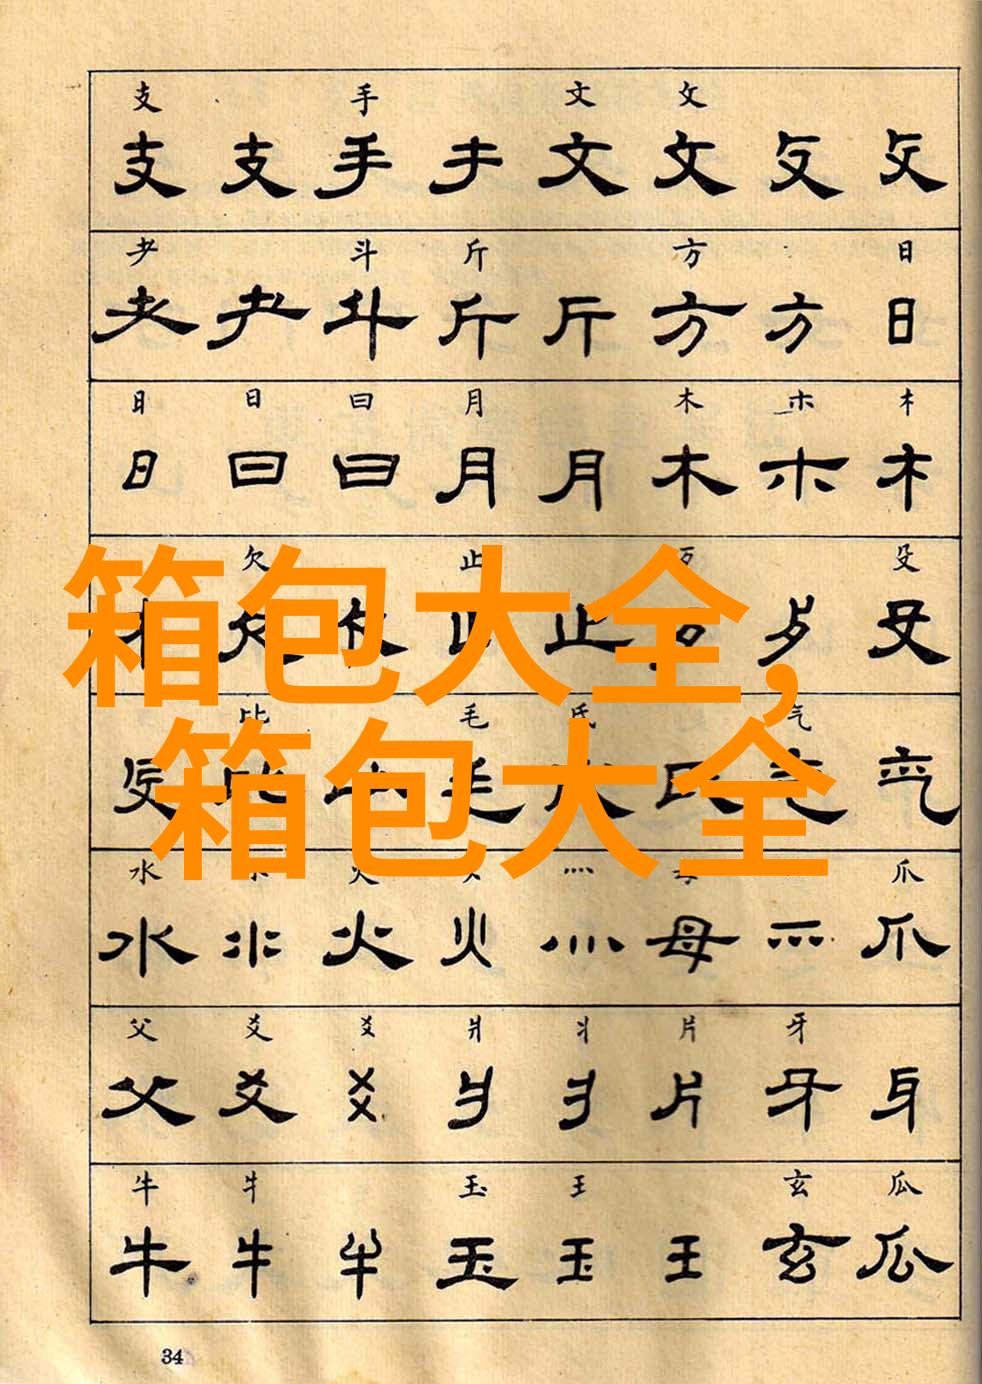 支 手 文 攵
支 支 手 手 文 攵 攵 攵
耂 斗 斤 方 日
耂 耂 斗 斤 斤 方 方 日
日 日 曰 月 木 朩
日 曰 曰 月 月 木 朩 木
欠 止 歹 殳
欠 止 止 歹 歹 殳
箱包大全,
比 毛 氏 气
殳 比 比 毛 氏 氏 气 气
箱包大全
水 火 灬 母 爪
水 氺 火 火 灬 母 灬 爪
父 爻 爻 爿 丬 片 牙
父 爻 爻 爿 丬 片 牙 牙
牛 牜 玉 王 玄 瓜
牛 牛 牛 玉 玉 王 玄 瓜
34